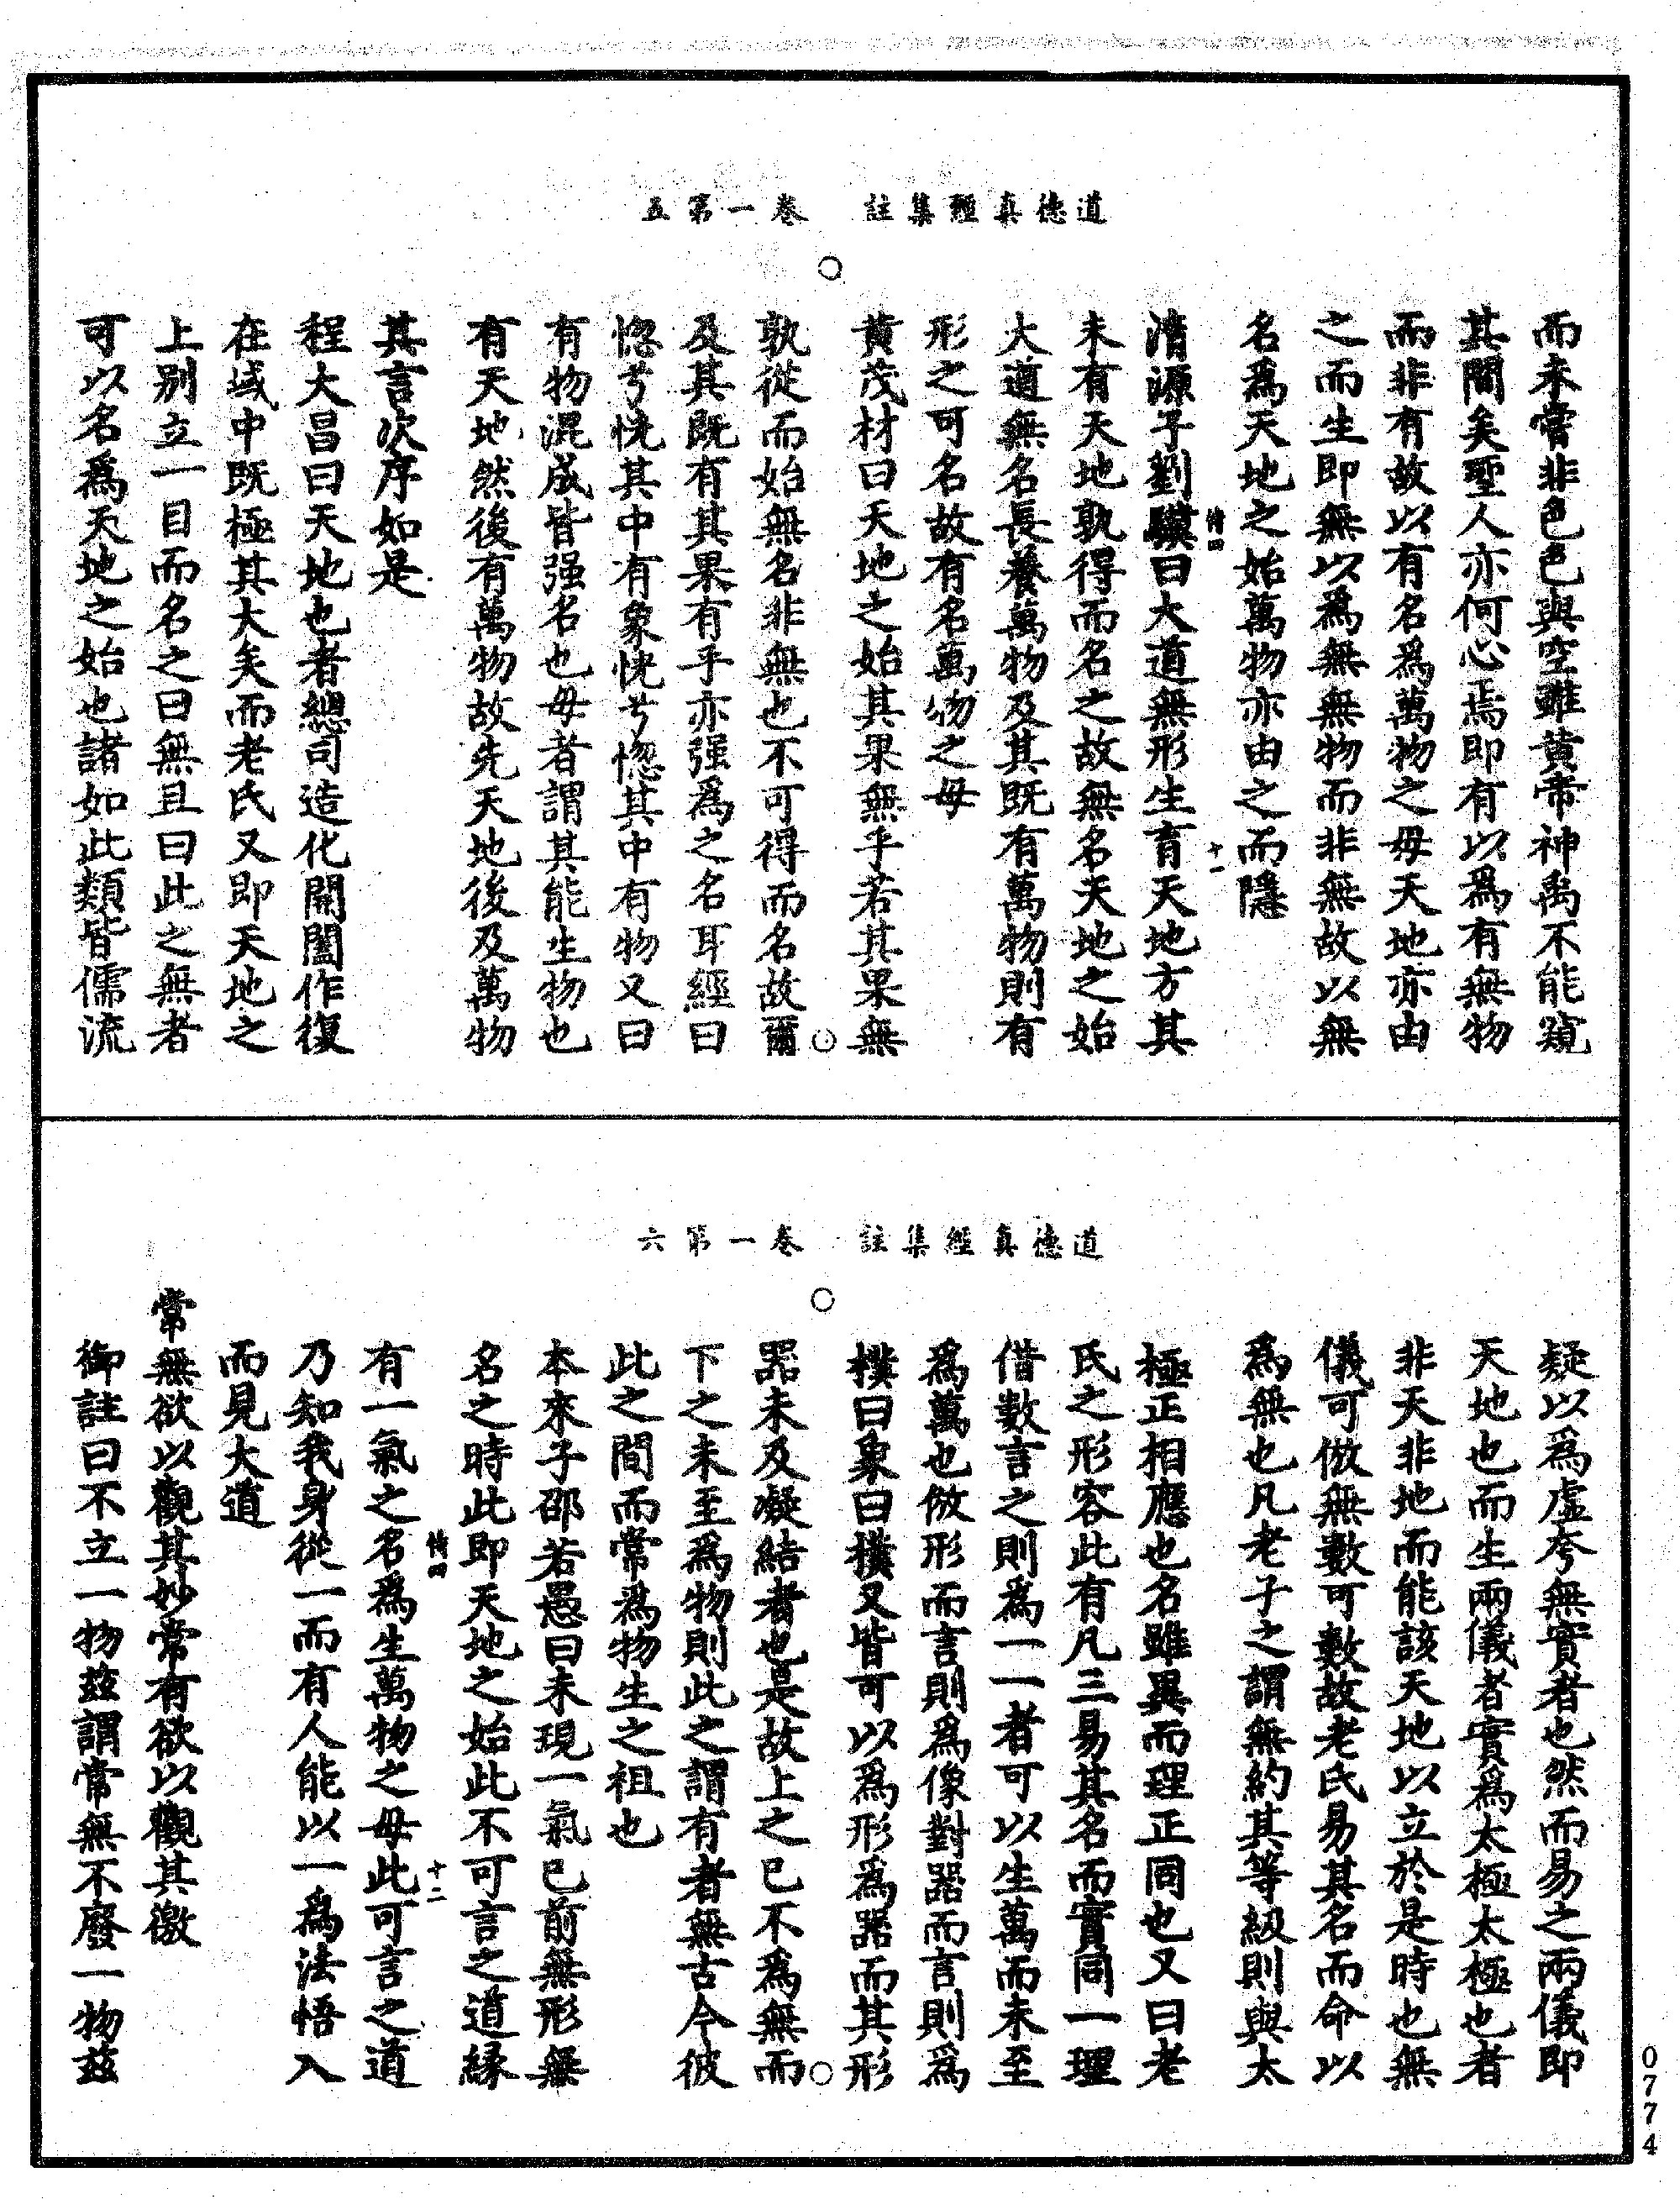 道德真經集註　卷一第五
而未嘗非色色與空雖黃帝神禹不能窺
其閒矣聖人亦何心焉即有以爲有無物
而非有故以有名爲萬物之母天地亦由
之而生即無以爲無無物而非無故以無
名爲天地之始萬物亦由之而隱
清源子劉驥曰大道無形生育天地方其
未有天地孰得而名之故無名天地之始
大道無名長養萬物及其既有萬物則有
形之可名故有名萬物之母
黃茂材曰天地之始其果無乎若其果無
孰從而始無名非無也不可得而名故爾
及其既有其果有乎亦强爲之名耳經曰
惚兮恍其中有象恍兮惚其中有物又曰
有物混成皆强名也母者謂其能生物也
有天地然後有萬物故先天地後及萬物
其言次序如是
程大昌曰天地也者總司造化開闔作復
在域中既極其大矣而老氏又即天地之
上别立一目而名之曰無且曰此之無者
可以名爲天地之始也諸如此類皆儒流
十一
道德真經集註　卷一第六
疑以爲虛夸無實者也然而易之兩儀即
天地也而生兩儀者實爲太極太極也者
非天非地而能該天地以立於是時也無
儀可倣無數可數故老氏易其名而命以
爲無也凡老子之謂無約其等級則與太
極正相應也名雖異而理正同也又曰老
氏之形容此有凡三易其名而實同一理
借數言之則爲一一者可以生萬而未至
爲萬也倣形而言則爲像對器而言則爲
樸曰象曰樸又皆可以爲形爲器而其形
器未及凝結者也是故上之已不爲無而
下之未至爲物則此之謂有者無古今彼
此之間而常爲物生之祖也
本來子邵若愚曰未現一氣已前無形無
名之時此即天地之始此不可言之道緣
有一氣之名爲生萬物之母此可言之道
乃知我身從一而有人能以一爲法悟入
而見大道
常無欲以觀其妙常有欲以觀其徼
御註曰不立一物茲謂常無不廢一物茲
十二
0774